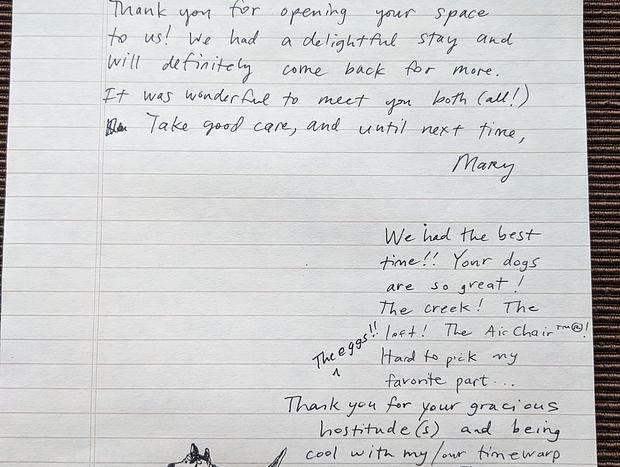 Thank you for opening your space
to us! We had a delightful stay and
will definitely come back for more.
It was wonderful to meet you both (all!)
Take good care, and until next time,
Mary
We had the best
time!! Your dogs
are so great!
The creek! The
loft! The Air Chair™®!
The eggs!!
Hard to pick my
favorite part...
Thank you for your gracious
hostitude(s) and being
cool with my/our timewarp